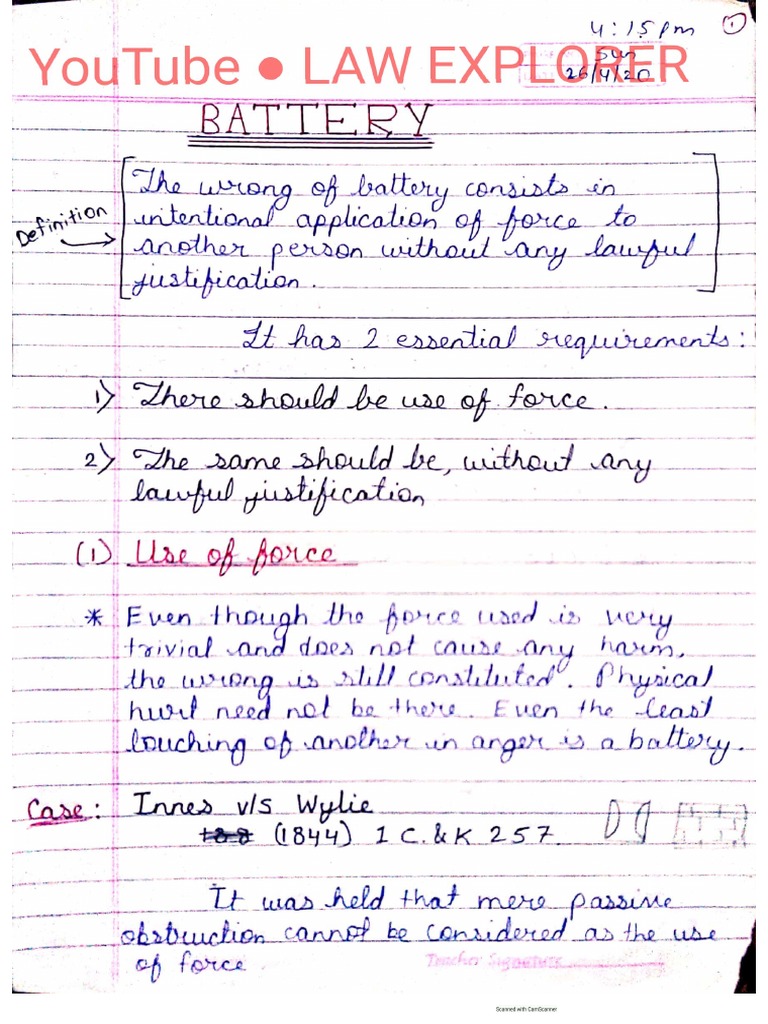 4:15pm
1
Sun
YouTube ● LAW EXPLORER
26/4/20
BATTERY
Definition
The wrong of battery consists in
intentional application of force to
another person without any lawful
justification.
It has 2 essential requirements:
1) There should be use of force.
2) The same should be, without any
lawful justification
(1) Use of force
* Even though the force used is very
trivial and does not cause any harm,
the wrong is still constituted. Physical
hurt need not be there. Even the least
touching of another in anger is a battery.
Case: Innes v/s Wylie
(1844) 1 C. & K 257.
It was held that mere passive
obstruction cannot be considered as the use
of force
Teacher Signature
Scanned with CamScanner